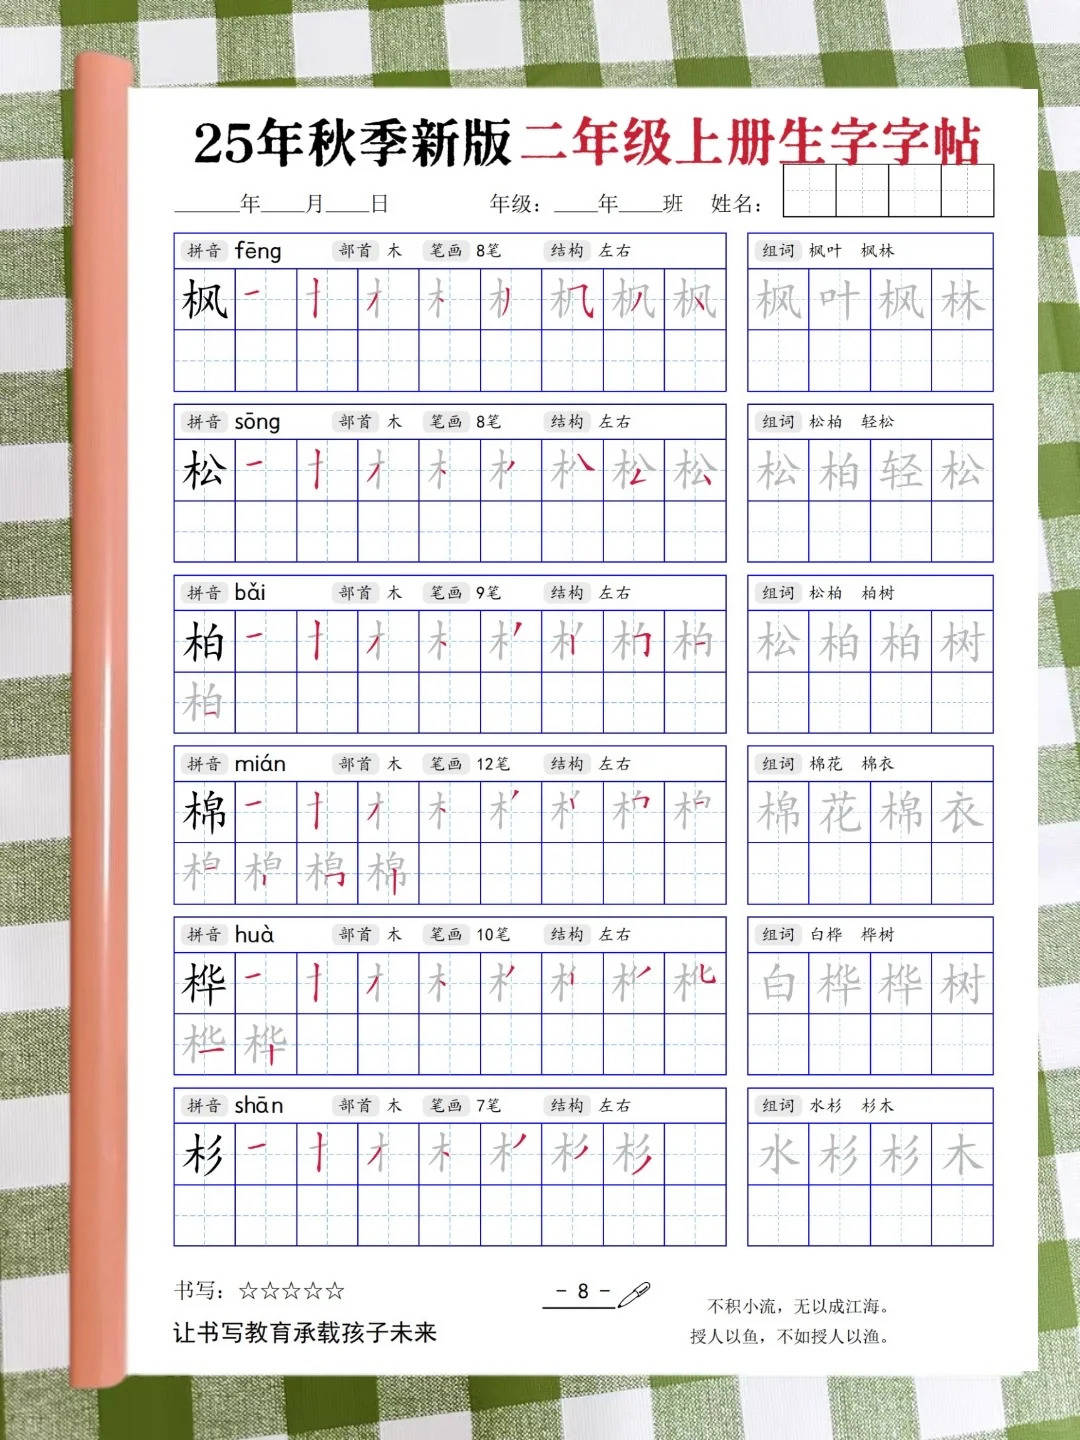 25年秋季新版二年级上册生字字帖
______年____月____日 年级：____年____班 姓名：
拼音 fēng 部首 木 笔画 8笔 结构 左右 组词 枫叶 枫林
枫 枫 叶 枫 林
拼音 sōng 部首 木 笔画 8笔 结构 左右 组词 松柏 轻松
松 松 柏 轻 松
拼音 bǎi 部首 木 笔画 9笔 结构 左右 组词 松柏 柏树
柏 松 柏 柏 树
柏
拼音 mián 部首 木 笔画 12笔 结构 左右 组词 棉花 棉衣
棉 棉 花 棉 衣
棉
拼音 huà 部首 木 笔画 10笔 结构 左右 组词 白桦 桦树
桦 白 桦 桦 树
桦
拼音 shān 部首 木 笔画 7笔 结构 左右 组词 水杉 杉木
杉 水 杉 杉 木
书写：☆☆☆☆☆
- 8 -
不积小流，无以成江海。
让书写教育承载孩子未来
授人以鱼，不如授人以渔。